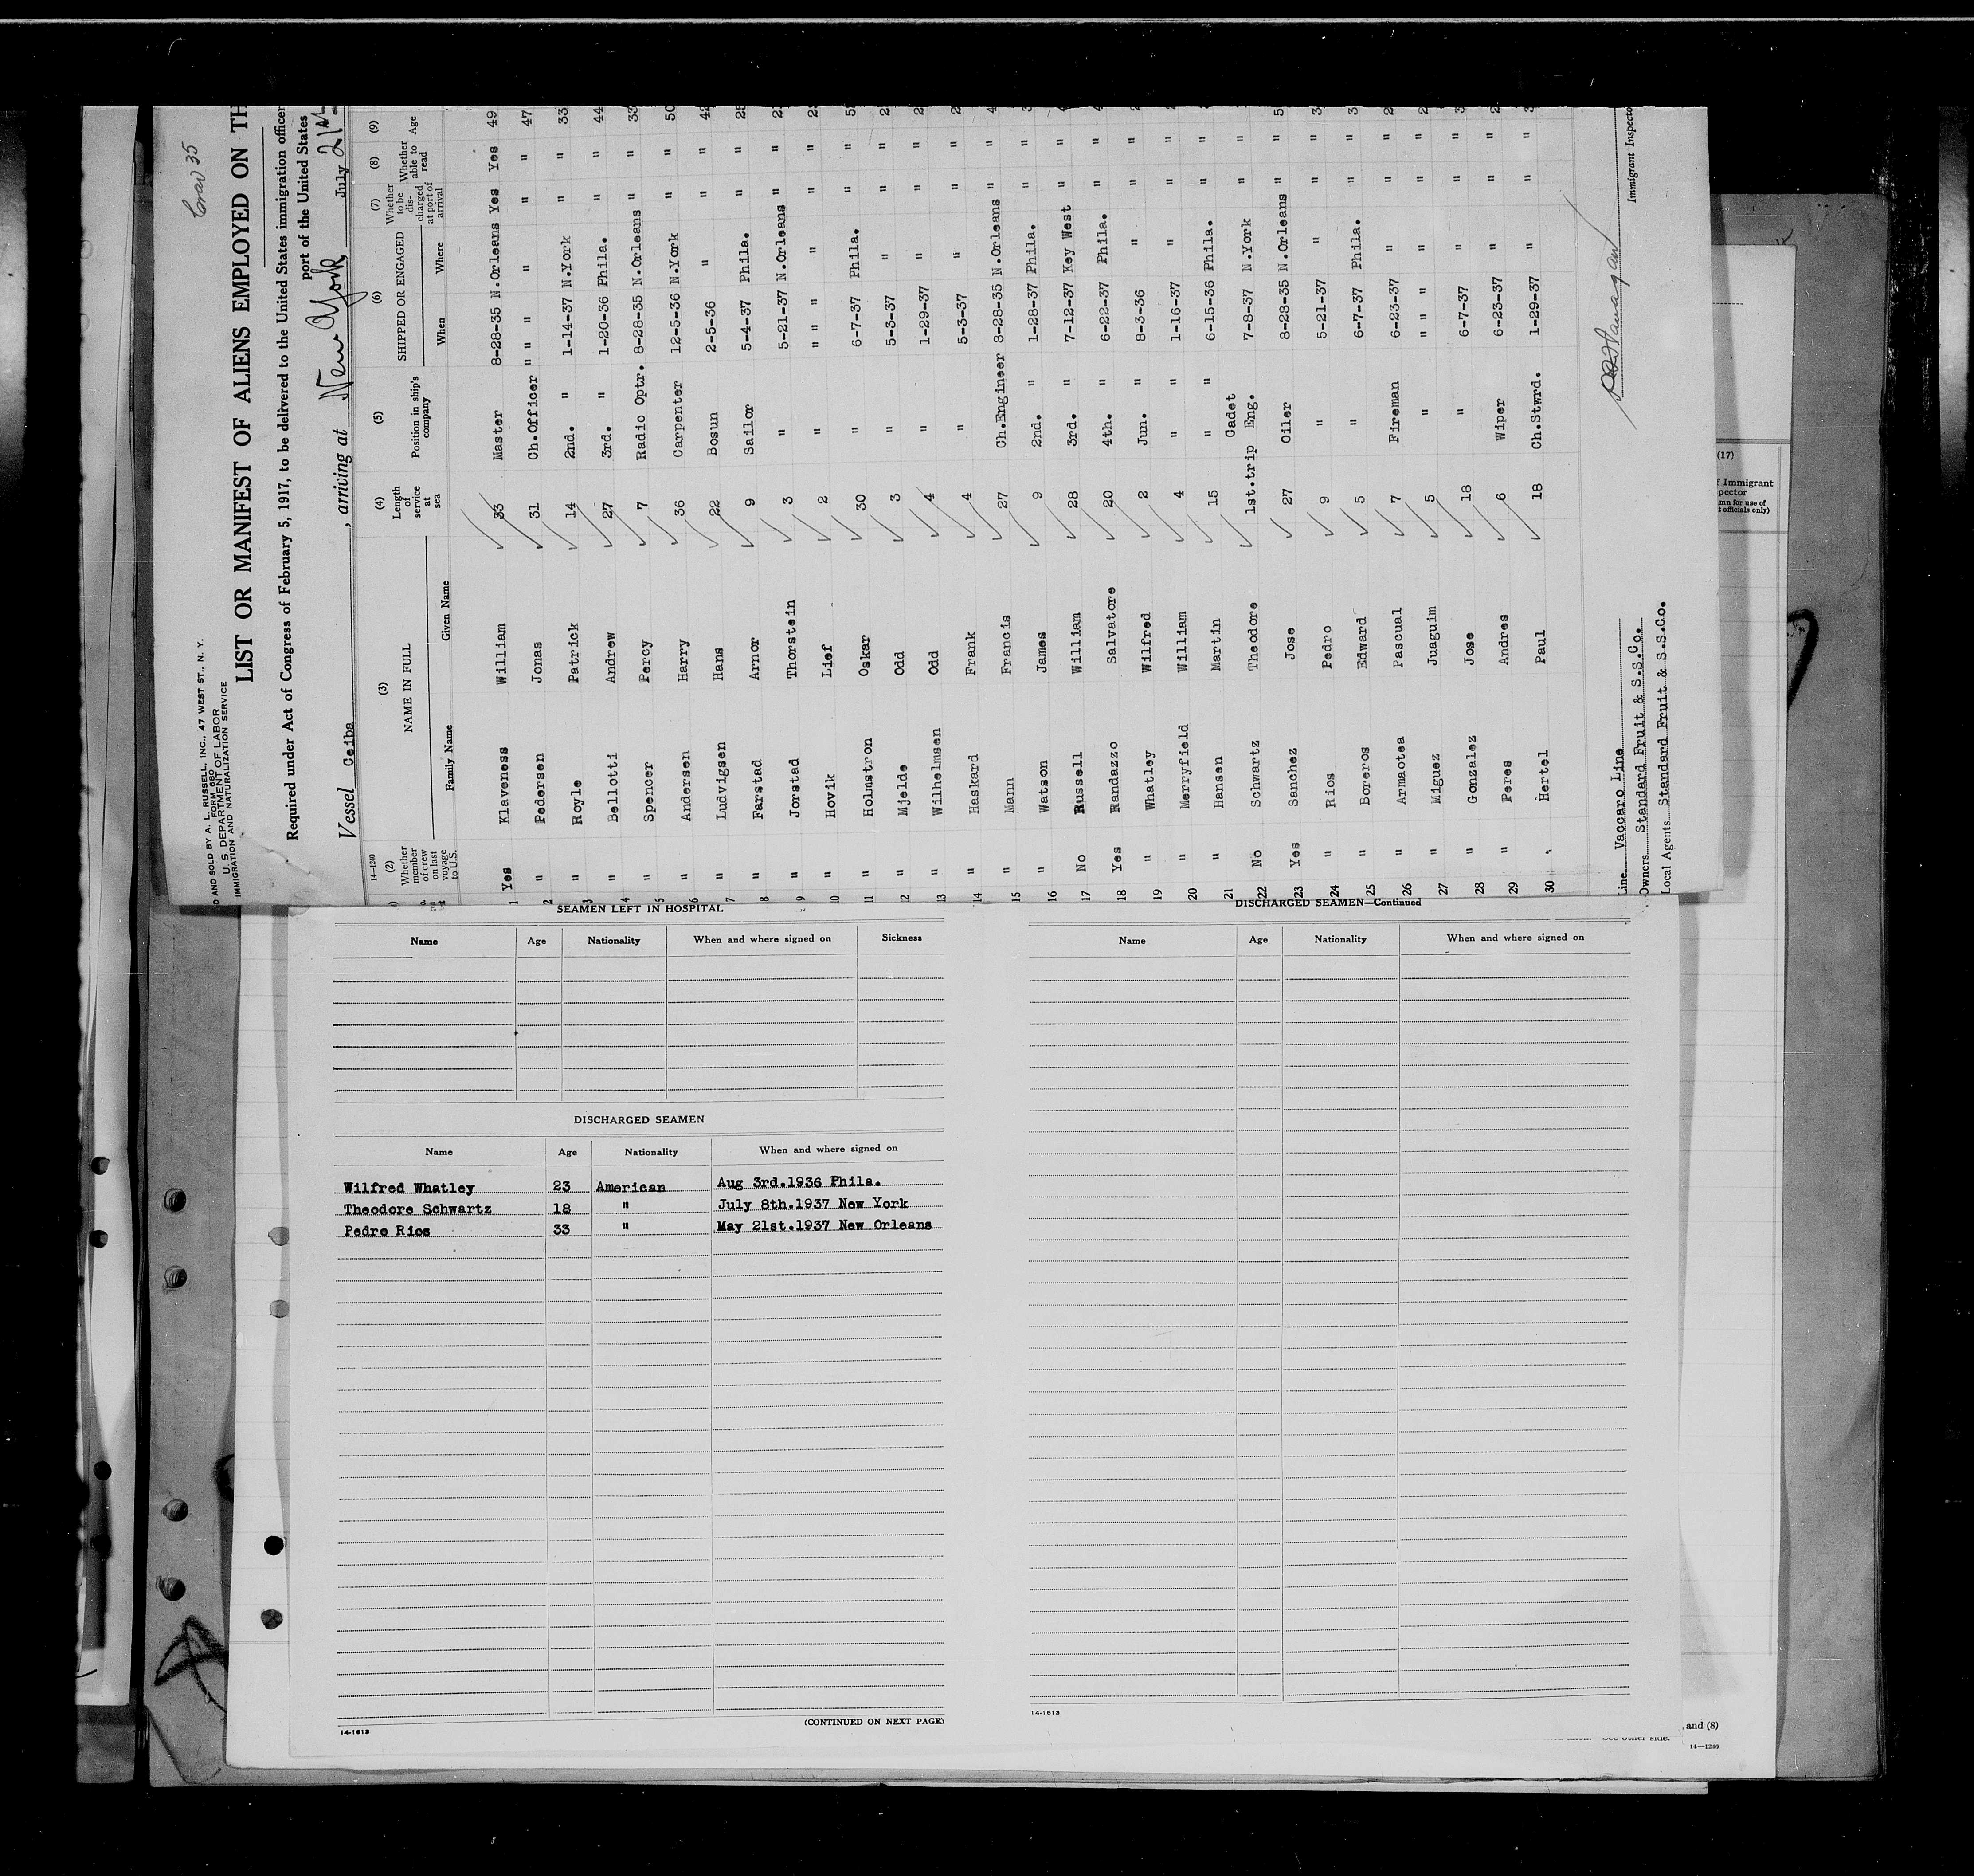 Crew 35
AND SOLD BY A. L. RUSSELL, INC., 47 WEST ST., N. Y.
FORM 680
U. S. DEPARTMENT OF LABOR
IMMIGRATION AND NATURALIZATION SERVICE
LIST OR MANIFEST OF ALIENS EMPLOYED ON TH
Required under Act of Congress of February 5, 1917, to be delivered to the United States immigration officer
port of the United States
Vessel Ceiba , arriving at New York July 21st
14-1240
(2) Whether member of crew on last voyage to U.S. (3) NAME IN FULL Family Name Given Name (4) Length of service at sea (5) Position in ship's company (6) SHIPPED OR ENGAGED When Where (7) Whether to be discharged at port of arrival (8) Whether able to read (9) Age
1 Yes Klaveness William 33 Master 8-28-35 N.Orleans Yes Yes 49
2 " Pedersen Jonas 31 Ch.Officer " " " " " " 47
3 " Royle Patrick 14 2nd. " 1-14-37 N.York " " 33
4 " Bellotti Andrew 27 3rd. " 1-20-36 Phila. " " 44
5 " Spencer Percy 7 Radio Optr. 8-28-35 N.Orleans " " 33
6 " Andersen Harry 36 Carpenter 12-5-36 N.York " " 50
7 " Ludvigsen Hans 22 Bosun 2-5-36 " " " 42
8 " Farstad Arnor 9 Sailor 5-4-37 Phila. " " 25
9 " Jorstad Thorstein 3 " 5-21-37 N.Orleans " "
10 " Hovik Lief 2 " " " " " "
11 " Holmstron Oskar 30 " 6-7-37 Phila. " "
12 " Mjelde Odd 3 " 5-3-37 " " "
13 " Wilhelmsen Odd 4 " 1-29-37 " " "
14 " Haskard Frank 4 " 5-3-37 " " "
15 " Mann Francis 27 Ch.Engineer 8-28-35 N.Orleans " "
16 " Watson James 9 2nd. " 1-28-37 Phila. " "
17 No Russell William 28 3rd. " 7-12-37 Key West " "
18 Yes Randazzo Salvatore 20 4th. " 6-22-37 Phila. " "
19 " Whatley Wilfred 2 Jun. " 8-3-36 " " "
20 " Merryfield William 4 " " 1-16-37 " " "
21 " Hansen Martin 15 " " 6-15-36 Phila. " "
22 No Schwartz Theodore 1st.trip Cadet Eng. 7-8-37 N.York " "
23 Yes Sanchez Jose 27 Oiler 8-28-35 N.Orleans " "
24 " Rios Pedro 9 " 5-21-37 " " "
25 " Boreros Edward 5 " 6-7-37 Phila. " "
26 " Armaotea Pascual 7 Fireman 6-23-37 " " "
27 " Miguez Juaguim 5 " " " " " "
28 " Gonzalez Jose 18 " 6-7-37 " " "
29 " Peres Andres 6 Wiper 6-23-37 " " "
30 Hertel Paul 18 Ch.Stwrd. 1-29-37 " " "
Line Vaccaro Line
Owners Standard Fruit & S.S.Co.
Local Agents Standard Fruit & S.S.Co.
Immigrant Inspecto
(17)
f Immigrant
pector
mn for use of
t officials only)
SEAMEN LEFT IN HOSPITAL
Name Age Nationality When and where signed on Sickness
DISCHARGED SEAMEN
Name Age Nationality When and where signed on
Wilfred Whatley 23 American Aug 3rd.1936 Phila.
Theodore Schwartz 18 " July 8th.1937 New York
Pedro Rios 33 " May 21st.1937 New Orleans
(CONTINUED ON NEXT PAGE)
14-1613
DISCHARGED SEAMEN—Continued
Name Age Nationality When and where signed on
14-1613
, and (8)
See other side.
14—1240